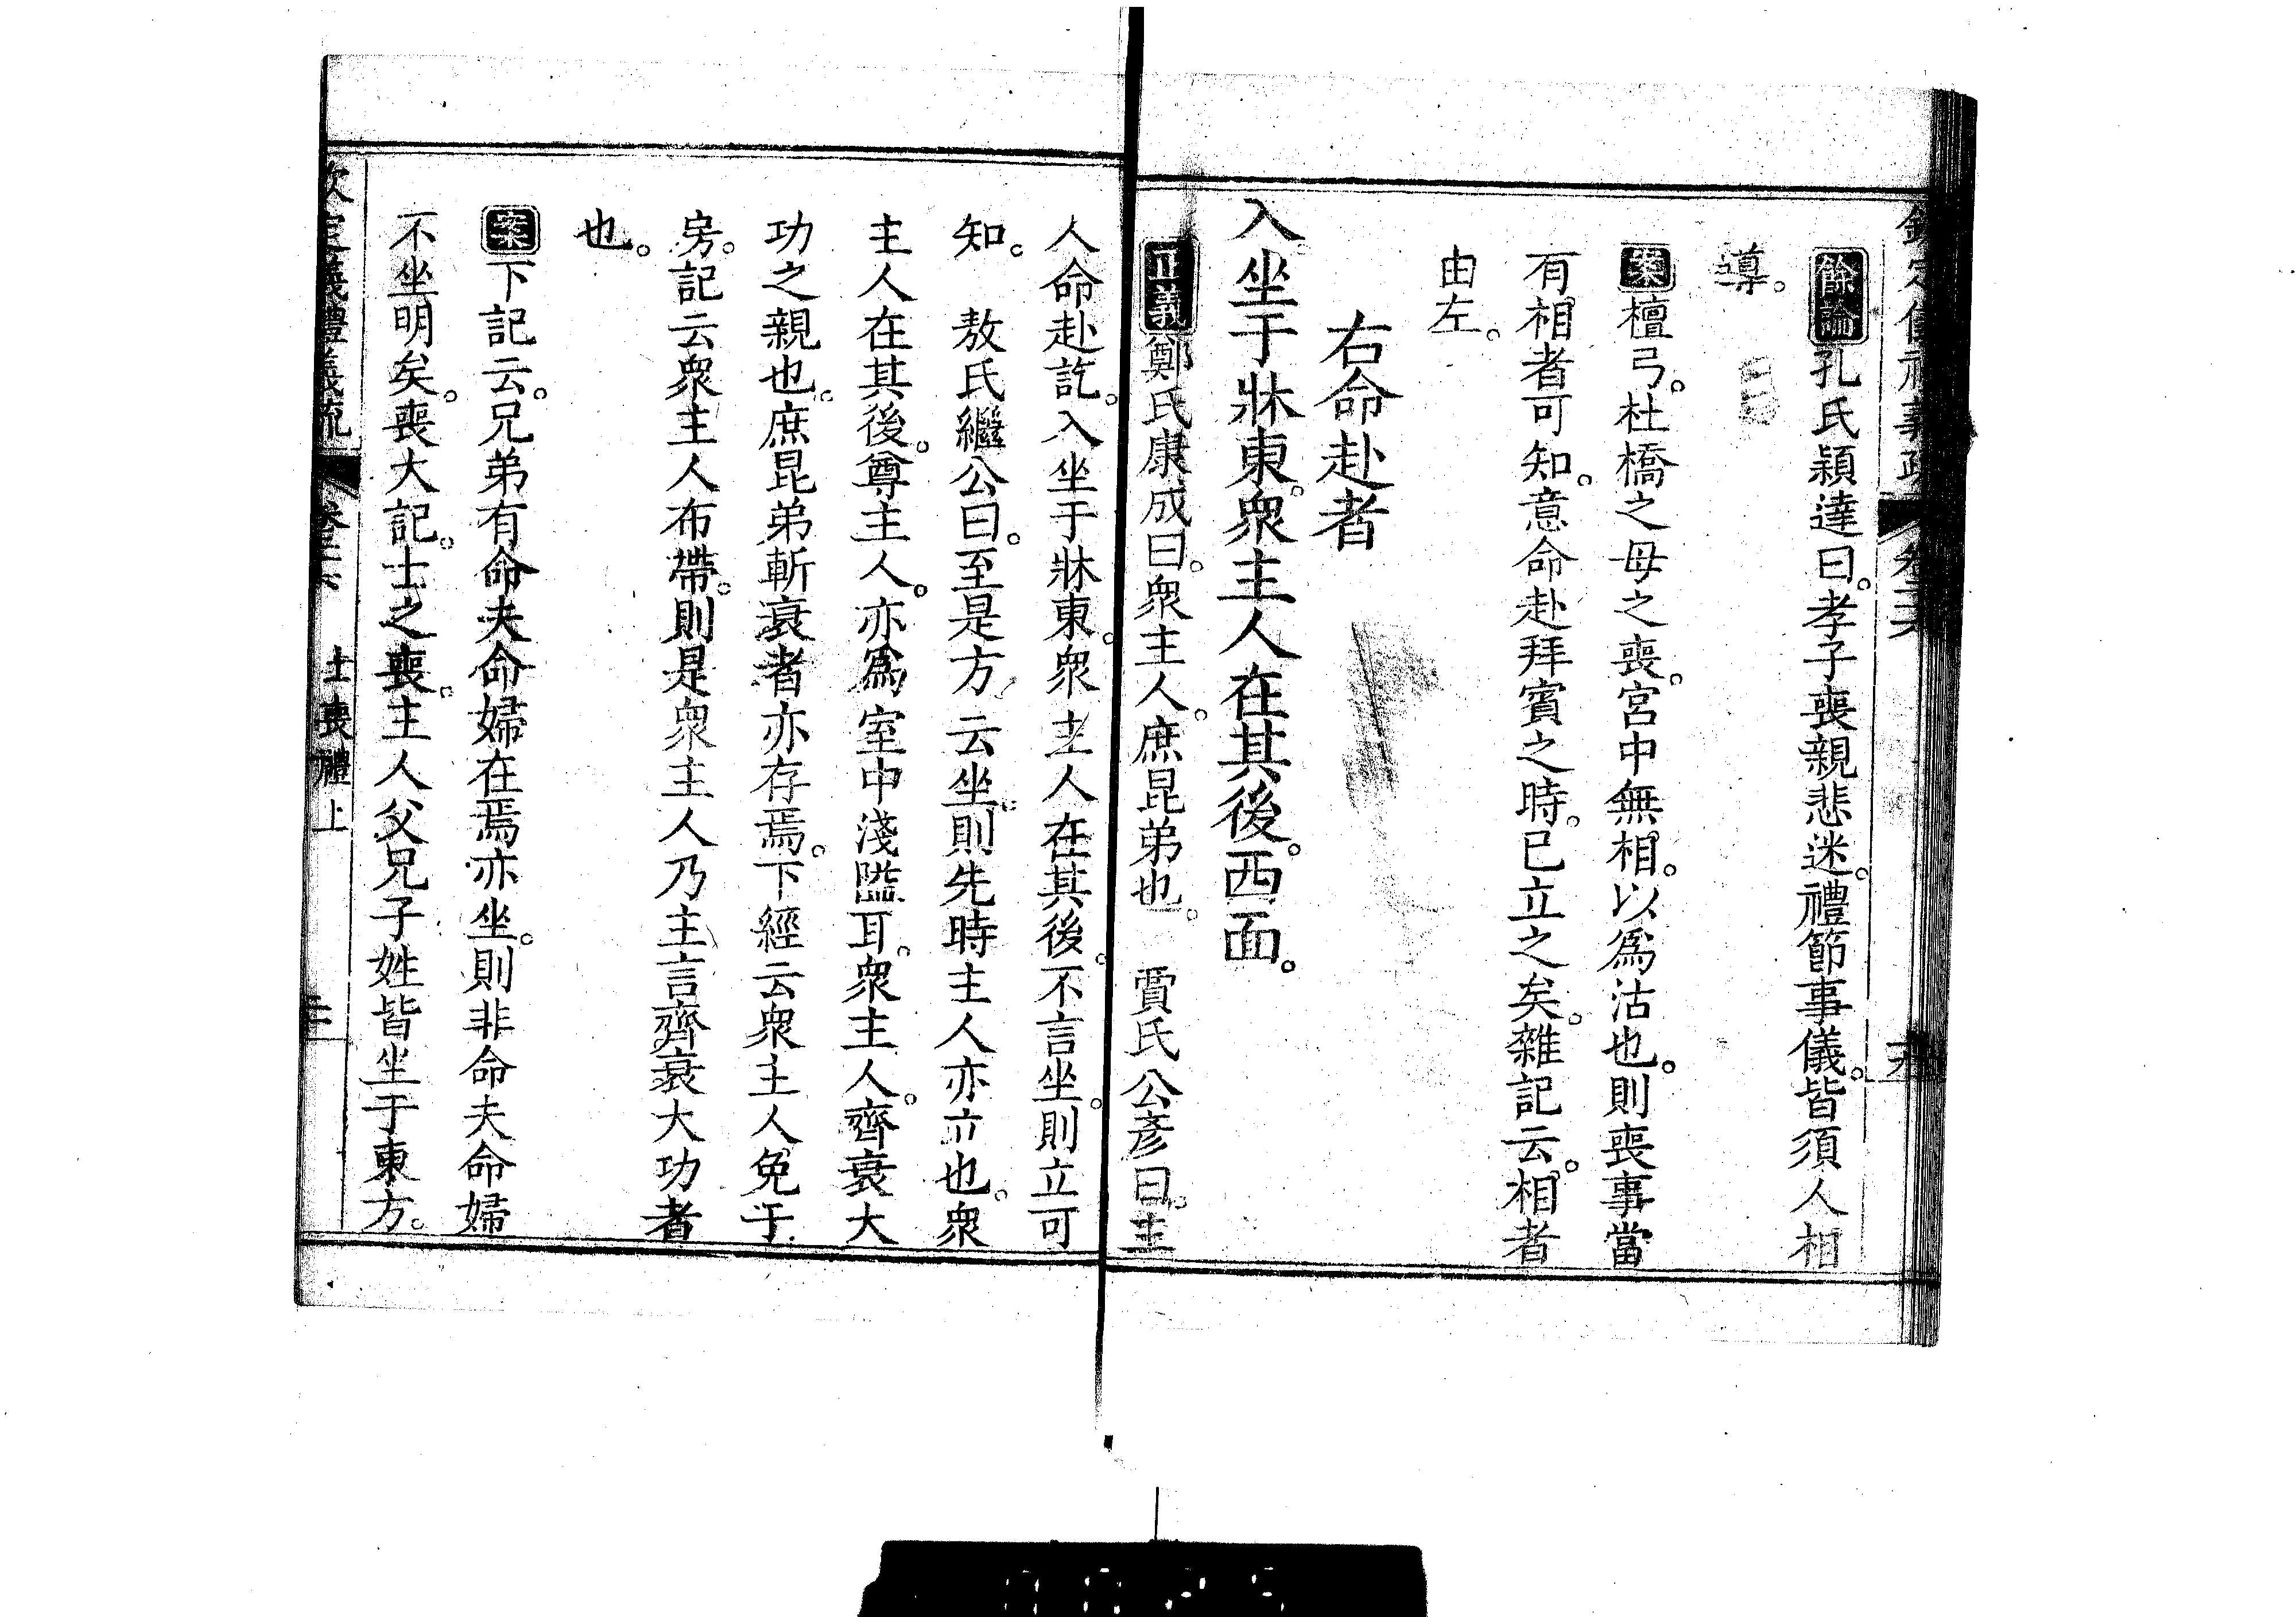 餘論孔氏穎達曰。孝子喪親悲迷。禮節事儀。皆須人相
導。
案檀弓。杜橋之母之喪。宮中無相。以爲沽也。則喪事當
有相者可知。意命赴拜賓之時。已立之矣。雜記云。相者
由左。
右命赴者
入坐于牀東。衆主人在其後。西面。
正義鄭氏康成曰。衆主人。庶昆弟也。　賈氏公彥曰。主
人命赴訖。入坐于牀東。衆主人在其後。不言坐。則立可
知。　敖氏繼公曰。至是方云坐。則先時主人亦立也。衆
主人在其後。尊主人。亦爲室中淺隘耳。衆主人。齊衰大
功之親也。庶昆弟斬衰者亦存焉。下經云衆主人免于
房。記云衆主人布帶。則是衆主人乃主言齊衰大功者
也。
案下記云。兄弟有命夫命婦在焉亦坐。則非命夫命婦
不坐明矣。喪大記。士之喪。主人父兄子姓皆坐于東方。
欽定儀禮義疏　卷二十六　士喪禮上